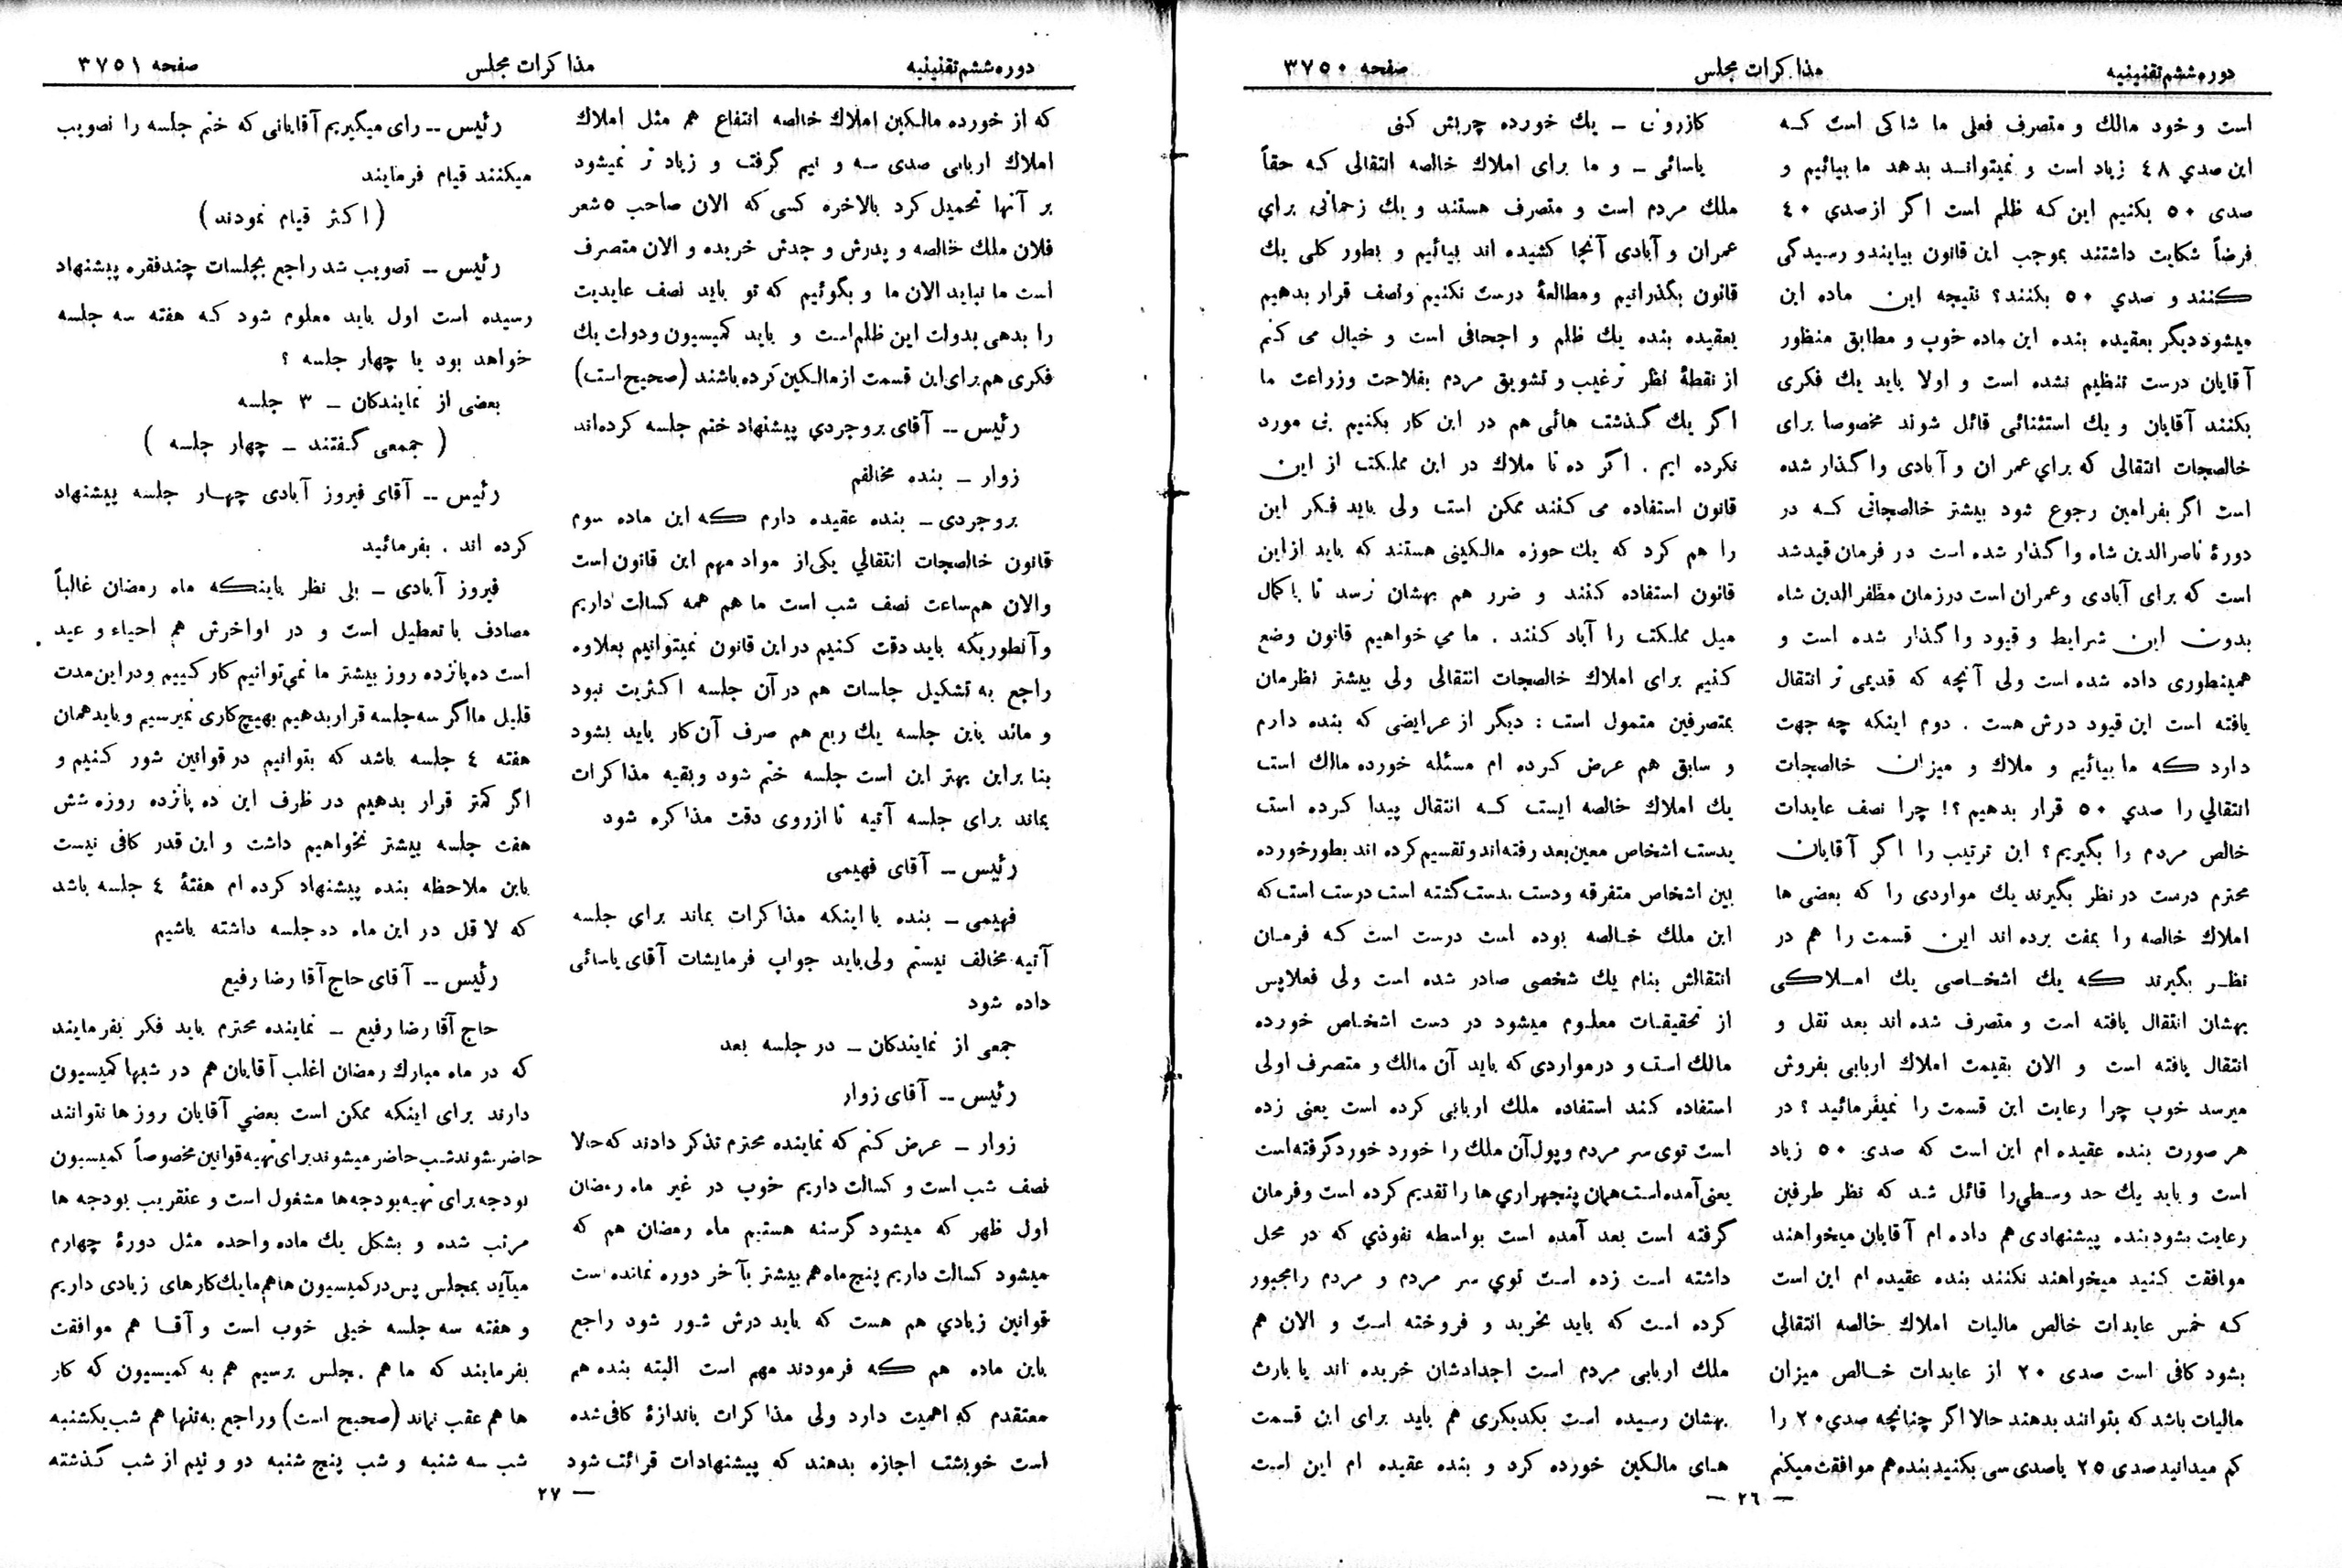 دوره ششم تقنینیه
مذاکرات مجلس
صفحه ۳۷۵۰
است و خود مالك و متصرف فعلی ما شاکی است که
این صدي ٤٨ زیاد است و نمیتوانـد بدهد ما بیائیم و
صدی ٥٠ بکنیم این که ظلم است اگر از صدي ٤٠
فرضاً شکایت داشتند بموجب این قانون بیایند و رسیدگی
کنند و صدي ٥٠ بکنند؟ نتیجه این ماده این
میشود دیگر بعقیده بنده این ماده خوب و مطابق منظور
آقایان درست تنظیم نشده است و اولا باید یك فکری
بکنند آقایان و یك استثنائی قائل شوند مخصوصا برای
خالصجات انتقالی که براي عمران و آبادی واگذار شده
است اگر بفرامین رجوع شود بیشتر خالصجاتی که در
دورۀ ناصرالدین شاه واگذار شده است در فرمان قید شد
است که برای آبادی و عمران است در زمان مظفرالدین شاه
بدون این شرایط و قیود واگذار شده است و
همینطوری داده شده است ولی آنچه که قدیمی تر انتقال
یافته است این قیود درش هست . دوم اینکه چه جهت
دارد که ما بیائیم و ملاك و میزان خالصجات
انتقالي را صدي ٥٠ قرار بدهیم ؟! چرا نصف عایدات
خالص مردم را بگیریم ؟ این ترتیب را اگر آقایان
محترم درست در نظر بگیرند یك مواردی را که بعضی ها
املاك خالصه را بمفت برده اند این قسمت را هم در
نظـر بگیرند که یك اشخـاصی یك امـلاکی
بهشان انتقال یافته است و متصرف شده اند بعد نقل و
انتقال یافته است و الان بقیمت املاك اربابی بفروش
میرسد خوب چرا رعایت این قسمت را نمیفرمائید ؟ در
هر صورت بنده عقیده ام این است که صدي ٥٠ زیاد
است و باید یك حد وسطي را قائل شد که نظر طرفین
رعایت بشود بنده پیشنهادی هم داده ام آقایان میخواهند
موافقت کنید میخواهند نکنند بنده عقیده ام این است
کـه خمس عایدات خالص مالیات املاك خالصه انتقالی
بشود کافی است صدی ۲۰ از عایدات خـالص میزان
مالیات باشد که بتوانند بدهند حالا اگر چنانچه صدي ۲۰ را
کم میدانید صدی ۲٥ یا صدی سی بکنید بنده هم موافقت میکنم
کازرونی ـ یك خورده چربش کنی
یاسائی ـ و ما برای املاك خالصه انتقالی کـه حقاً
ملك مردم است و متصرف هستند و یك زحماتی براي
عمران و آبادی آنجا کشیده اند بیائیم و بطور کلی یك
قانون بگذرانیم و مطالعۀ درست نکنیم و نصف قرار بدهیم
بعقیده بنده یك ظلم و اجحافی است و خیال می کنم
از نقطۀ نظر ترغیب و تشویق مردم بفلاحت و زراعت ما
اگر یك گـذشت هائی هم در این کار بکنیم بی مورد
نکرده ایم . اگر ده تا ملاك در این مملکت از این
قانون استفاده می کنند ممکن است ولی باید فـکر این
را هم کرد که یك حوزه مالـکینی هستند که باید از این
قانون استفاده کـنند و ضرر هم بهشان نرسد تا با کمال
میل مملکت را آباد کـنند . ما می خواهیم قانون وضع
کنیم برای املاك خالصجات انتقالی ولی بیشتر نظرمان
بمتصرفین متمول است : دیگر از عرایضی که بنده دارم
و سابق هم عرض کـرده ام مسئله خورده مالك است
یك املاك خالصه ایست کـه انتقال پیدا کـرده است
بدست اشخاص معین بعد رفته اند و تقسیم کرده اند بطور خورده
بین اشخاص متفرقه و دست بدست گشته است درست است که
این ملك خـالصه بوده است درست است کـه فرمـان
انتقالش بنام یك شخصی صادر شده است ولی فعلا پس
از تحقیقـات معلـوم میشود در دست اشخـاص خورده
مالك است و در مواردی که باید آن مالك و متصرف اولی
استفاده کـند استفاده ملك اربابی کرده است یعنی زده
است توی سر مردم و پول آن ملك را خورد خورد گرفته است
یعنی آمده است همان پنجهزاري ها را تقدیم کرده است و فرمان
گرفته است بعد آمده است بواسطه نفوذي که در محل
داشته است زده است توي سر مردم و مردم را مجبور
کرده است که باید بخرید و فروخته است و الان هم
ملك اربابی مردم است اجدادشان خریده اند یا بارث
بهشان رسیده است یکدیگری هم باید برای این قسمت
هـای مالـکین خورده کرد و بنده عقیده ام این است
ـ ۲٦ ـ
دوره ششم تقنینیه
مذاکرات مجلس
صفحه ۳۷۵۱
که از خورده مالـکین املاك خالصه انتفاع هم مثل املاك
املاك اربابی صدی سه و نیم گرفت و زیاد تر نمیشود
بر آنها تحمیل کرد بالاخره کسی که الان صاحب ٥ شعر
فلان ملك خالصه و پدرش و جدش خریده و الان متصرف
است ما نباید الان ما و بگوئیم که تو باید نصف عایدیت
را بدهی بدولت این ظلم است و باید کمیسیون و دولت یك
فکری هم برای این قسمت از مالـکین کرده باشند (صحیح است)
رئیس ــ آقای بروجردي پیشنهاد ختم جلسه کرده اند
زوار ـ بنده مخالفم
بروجردی ـ بنده عقیده دارم که این ماده سوم
قانون خالصجات انتقالي یکی از مواد مهم این قانون است
و الان هم ساعت نصف شب است ما هم همه کسالت داریم
و آنطوریکه باید دقت کنیم در این قانون نمیتوانیم بعلاوه
راجع به تشکیل جلسات هم در آن جلسه اکثریت نبود
و ماند باین جلسه یك ربع هم صرف آن کار باید بشود
بنا براین بهتر این است جلسه ختم شود و بقیه مذاکرات
بماند برای جلسه آتیه تا از روی دقت مذاکره شود
رئیس ــ آقای فهیمی
فهیمی ـ بنده با اینکه مذاکرات بماند برای جلسه
آتیه مخالف نیستم ولی باید جواب فرمایشات آقای یاسائی
داده شود
جمعی از نمایندکان ـ در جلسه بعد
رئیس ــ آقای زوار
زوار ـ عرض کنم که نماینده محترم تذکر دادند که حالا
نصف شب است و کسالت داریم خوب در غیر ماه رمضان
اول ظهر که میشود گرسنه هستیم ماه رمضان هم که
میشود کسالت داریم پنج ماه هم بیشتر بآخر دوره نمانده است
قوانین زیادي هم هست که باید درش شور شود راجع
باین ماده هم که فرمودند مهم است البته بنده هم
معتقدم که اهمیت دارد ولی مذاکرات باندازۀ کافی شده
است خوبست اجازه بدهند که پیشنهادات قرائت شود
رئیس ــ رای میگیریم آقایانی که ختم جلسه را تصویب
میکنند قیام فرمایند
( اکثر قیام نمودند )
رئیس ــ تصویب شد راجع بجلسات چند فقره پیشنهاد
رسیده است اول باید معلوم شود که هفته سه جلسه
خواهد بود یا چهار جلسه ؟
بعضی از نمایندکان ـ ۳ جلسه
( جمعی گـفتند ـ چهار جلسه )
رئیس ــ آقای فیروز آبادی چهـار جلسه پیشنهاد
کرده اند . بفرمائید
فیروز آبادی ـ بلی نظر باینکه ماه رمضان غالباً
مصادف با تعطیل است و در اواخرش هم احیاء و عید
است ده پانزده روز بیشتر ما نمی توانیم کار کنیم و در این مدت
قلیل ما اگر سه جلسه قرار بدهیم بهیچ کاری نمیرسیم و باید همان
هفته ٤ جلسه باشد که بتوانیم در قوانین شور کـنیم و
اگر کمتر قرار بدهیم در ظرف این ده پانزده روزه شش
هفت جلسه بیشتر نخواهیم داشت و این قدر کافی نیست
باین ملاحظه بنده پیشنهاد کرده ام هفتۀ ٤ جلسه باشد
که لا قل در این ماه ده جلسه داشته باشیم
رئیس ــ آقای حاج آقا رضا رفیع
حاج آقا رضا رفیع ـ نماینده محترم باید فکر بفرمایند
که در ماه مبارك رمضان اغلب آقایان هم در شبها کمیسیون
دارند برای اینکه ممکن است بعضي آقایان روز ها نتوانند
حاضر شوند شب حاضر میشوند برای تهیه قوانین مخصوصاً کمیسیون
بودجه برای تهیه بودجه ها مشغول است و عنقریب بودجه ها
مرتب شده و بشکل یك ماده واحده مثل دورۀ چهارم
میآید بمجلس پس در کمیسیون ها هم ما یك کار های زیادی داریم
و هفته سه جلسه خیلی خوب است و آقـا هم موافقت
بفرمایند که ما هم بمجلس برسیم هم به کمیسیون که کار
ها هم عقب نماند (صحیح است) و راجع به تنها هم شب یکشنبه
شب سه شنبه و شب پنج شنبه دو و نیم از شب گـذشته
ـ ۲۷ ـ